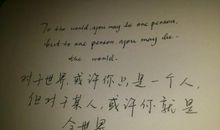 To the world, you may be one person,
but to one person, you may be
the world.
对于世界,或许你只是一个人,
但对于某人,或许你就是
全世界